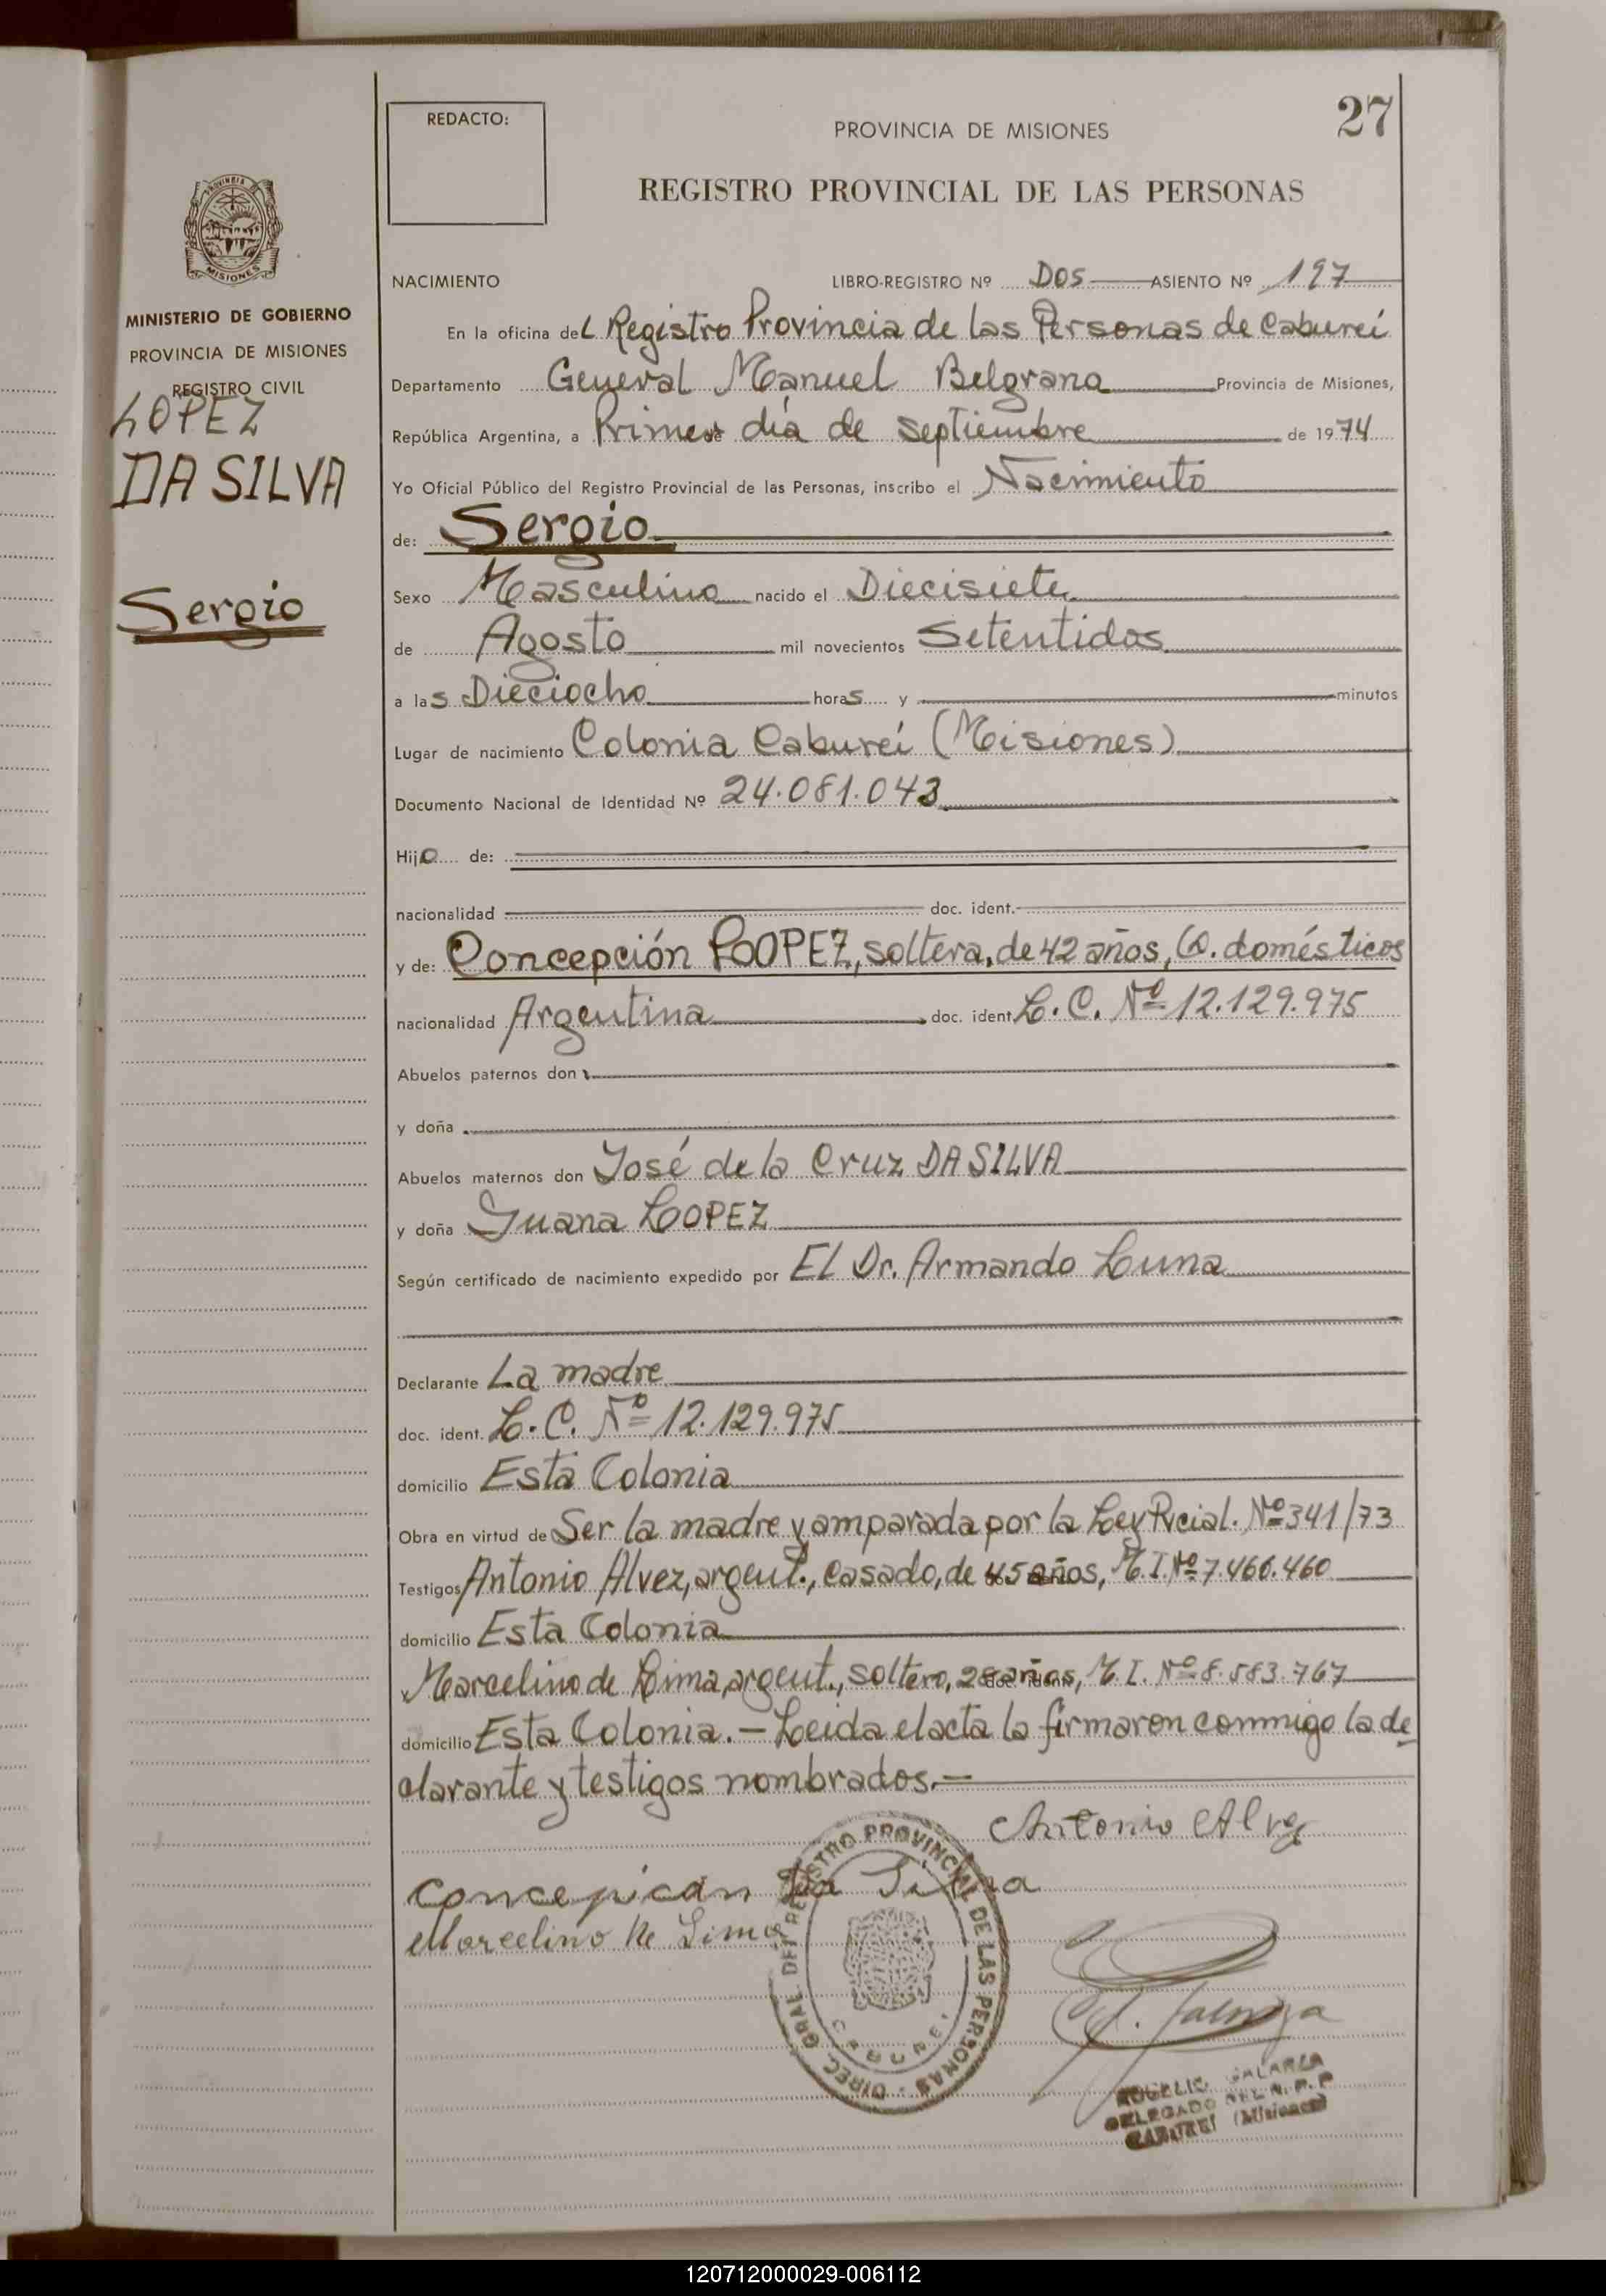 27
REDACTO:
PROVINCIA DE MISIONES
REGISTRO PROVINCIAL DE LAS PERSONAS
PROVINCIA DE
MISIONES
MINISTERIO DE GOBIERNO
PROVINCIA DE MISIONES
REGISTRO CIVIL
LOPEZ
DA SILVA
Sergio
NACIMIENTO LIBRO-REGISTRO Nº DOS ASIENTO Nº 197
En la oficina del Registro Provincia de las Personas de Caburei
Departamento General Manuel Belgrano Provincia de Misiones,
República Argentina, a Primero día de septiembre de 1974
Yo Oficial Público del Registro Provincial de las Personas, inscribo el Nacimiento
de: Sergio
Sexo Masculino nacido el Diecisiete
de Agosto mil novecientos Setentidos
a las Dieciocho horas y minutos
Lugar de nacimiento Colonia Caburei (Misiones)
Documento Nacional de Identidad Nº 24.081.043
Hijo de:
nacionalidad doc. ident.
y de: Concepción LOPEZ, soltera, de 42 años, Q. domésticos
nacionalidad Argentina doc. ident. L. C. Nº 12.129.975
Abuelos paternos don
y doña
Abuelos maternos don José de la Cruz DA SILVA
y doña Juana LOPEZ
Según certificado de nacimiento expedido por El Dr. Armando Luna
Declarante La madre
doc. ident. L. C. Nº 12.129.975
domicilio Esta Colonia
Obra en virtud de Ser la madre y amparada por la Ley Pvcial. Nº 341/73
Testigos Antonio Alvez, argent., casado, de 45 años, M. I. Nº 7.460.460
domicilio Esta Colonia
Marcelino de Lima, argent., soltero, 28 años, M. I. Nº 8.583.767
domicilio Esta Colonia. - Leida el acta la firmaron conmigo la de
clarante y testigos nombrados. -
Antonio Alvez
Concepican Da Silva
Marcelino De Lima
DIREC. GRAL. DEL REGISTRO PROVINCIAL DE LAS PERSONAS
CABUREI
ROGELIO GALARZA
DELEGADO DEL R. P. P
CABUREI (Misiones)
120712000029-006112